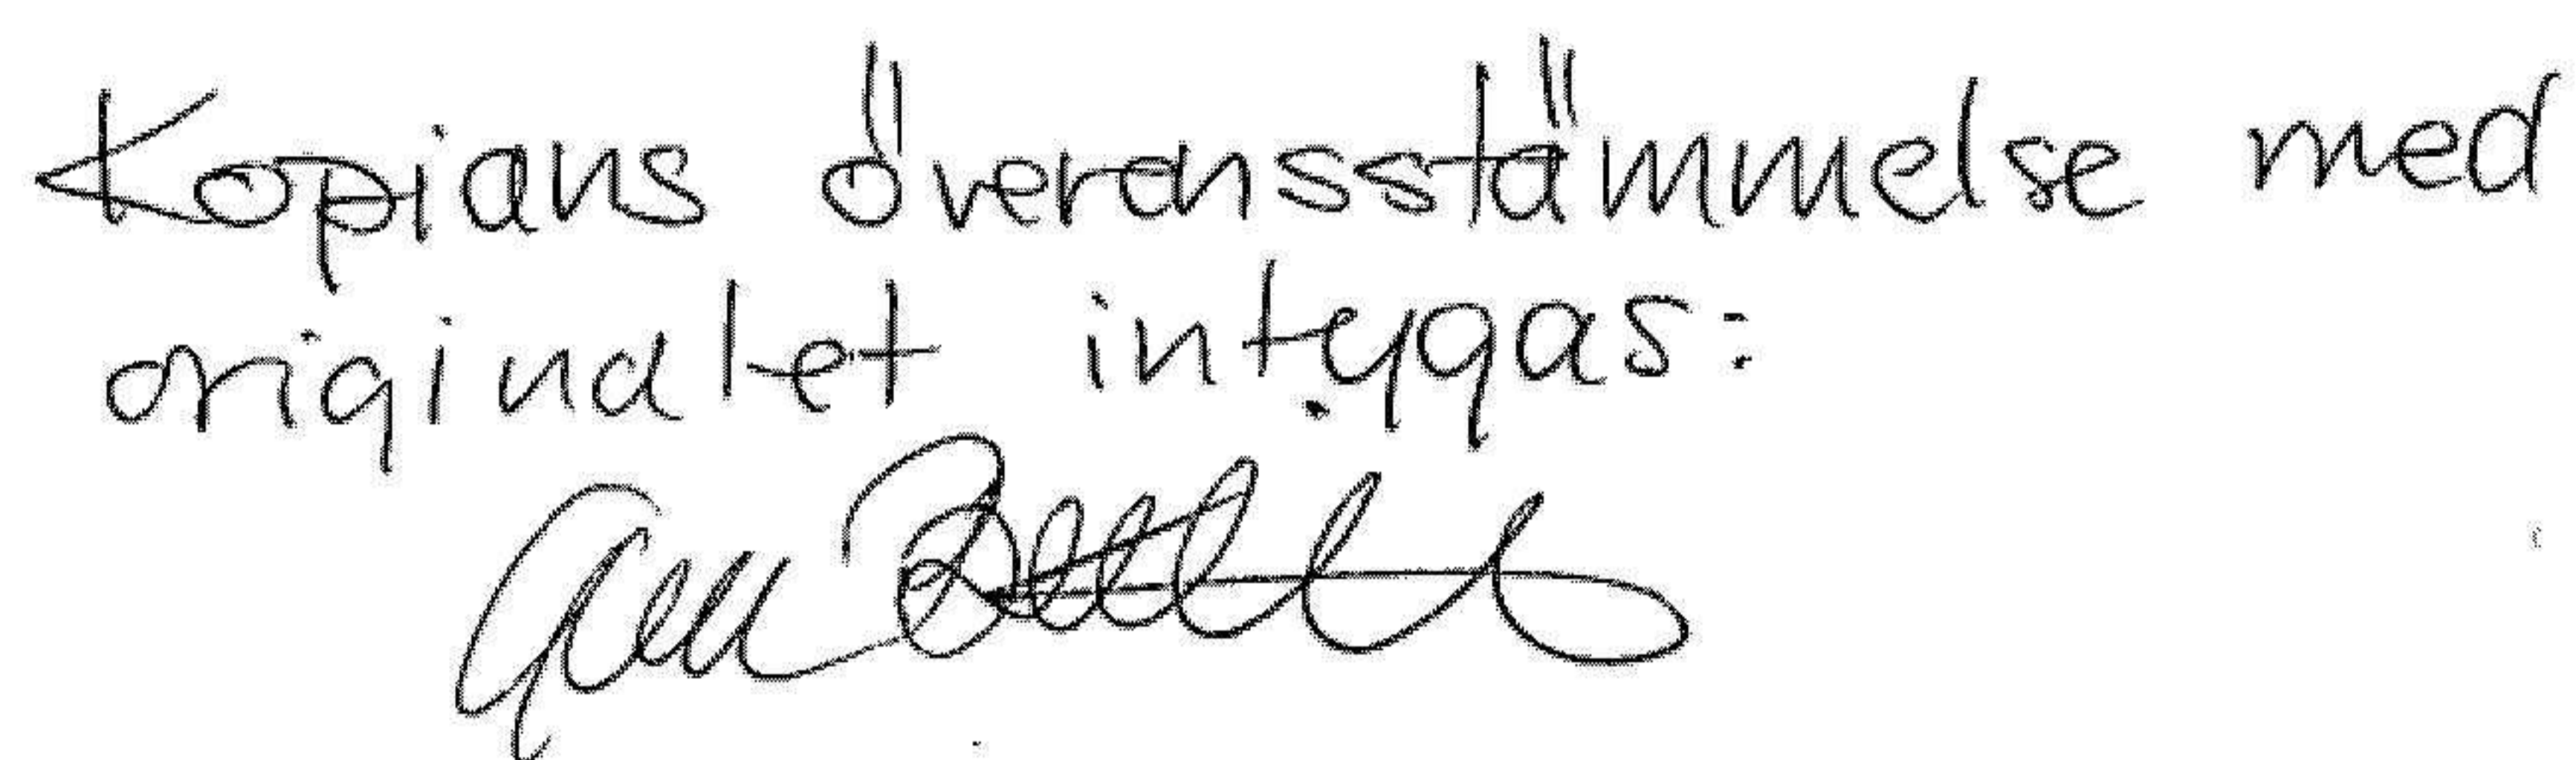 Kopians överensstämmelse med
originalet intygas: